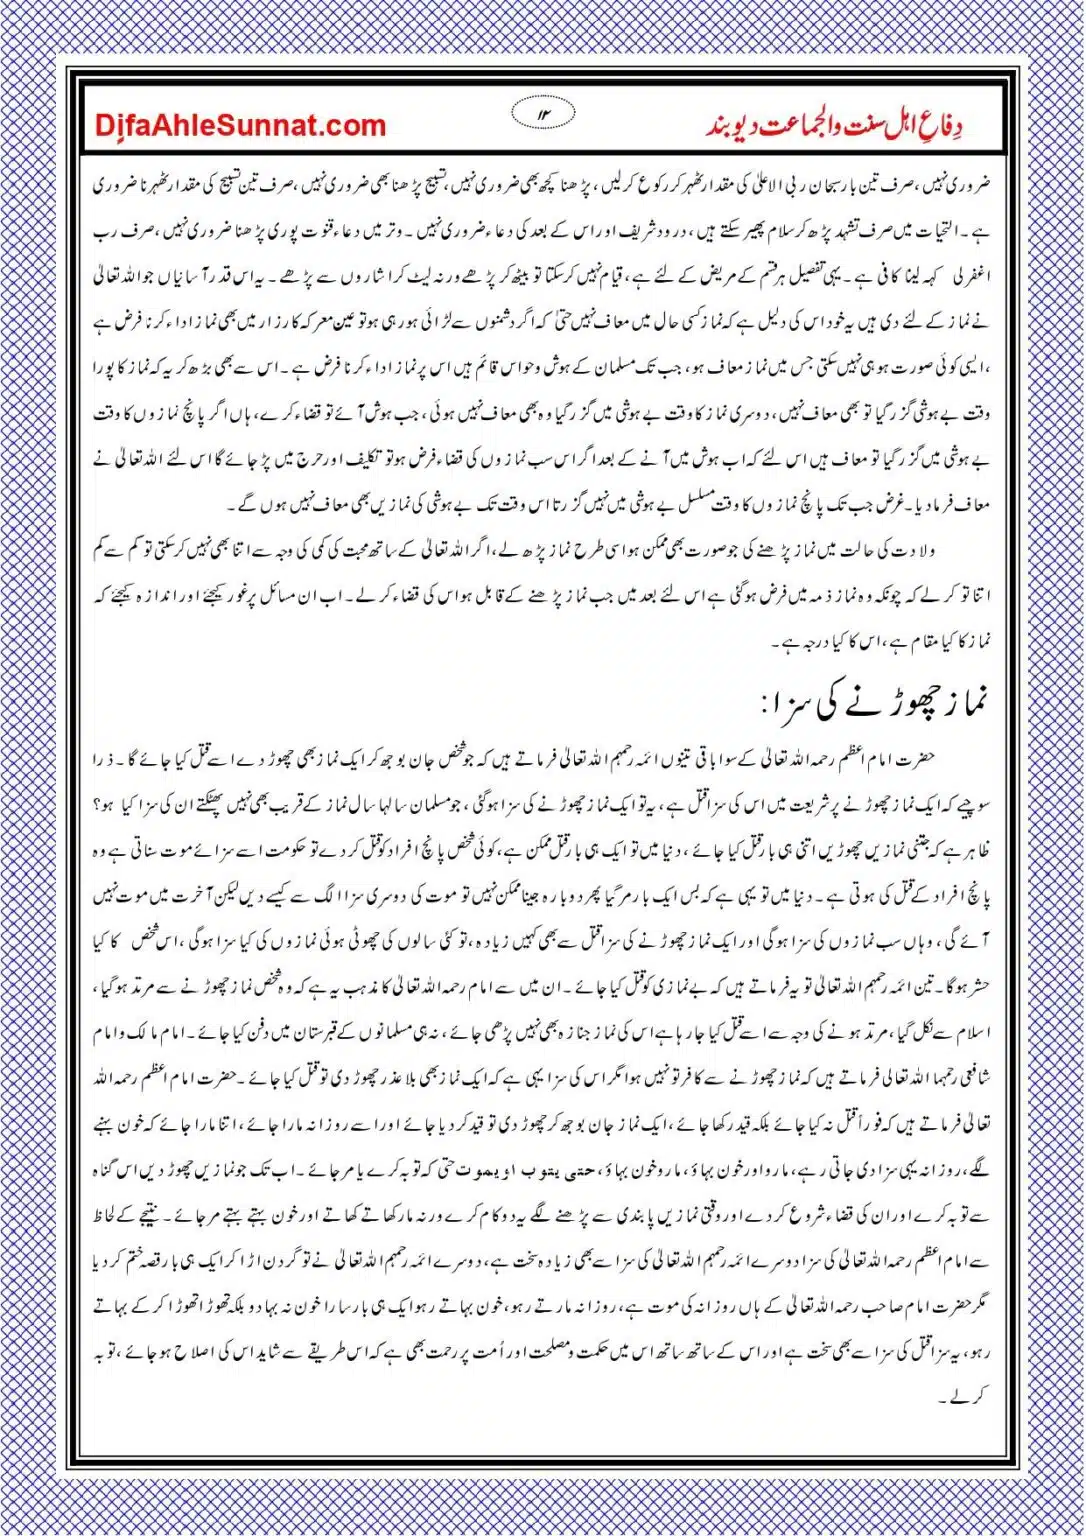 DifaAhleSunnat.com
۱۲
دِفاعِ اہل سنت والجماعت دیوبند
ضروری نہیں، صرف تین بار سبحان ربی الاعلیٰ کی مقدار ٹھہر کر رکوع کر لیں، پڑھنا کچھ بھی ضروری نہیں، تسبیح پڑھنا بھی ضروری نہیں، صرف تین تسبیح کی مقدار ٹھہرنا ضروری
ہے۔ التحیات میں صرف تشہد پڑھ کر سلام پھیر سکتے ہیں، درود شریف اور اس کے بعد کی دعاء ضروری نہیں۔ وتر میں دعاء قنوت پوری پڑھنا ضروری نہیں، صرف رب
اغفر لی کہہ لینا کافی ہے۔ یہی تفصیل ہر قسم کے مریض کے لئے ہے، قیام نہیں کر سکتا تو بیٹھ کر پڑھے ورنہ لیٹ کر اشاروں سے پڑھے۔ یہ اس قدر آسانیاں جو اللہ تعالیٰ
نے نماز کے لئے دی ہیں یہ خود اس کی دلیل ہے کہ نماز کسی حال میں معاف نہیں حتیٰ کہ اگر دشمنوں سے لڑائی ہو رہی ہو تو عین معرکہ کارزار میں بھی نماز اداء کرنا فرض ہے
، ایسی کوئی صورت ہو ہی نہیں سکتی جس میں نماز معاف ہو، جب تک مسلمان کے ہوش وحواس قائم ہیں اس پر نماز اداء کرنا فرض ہے۔ اس سے بھی بڑھ کر یہ کہ نماز کا پورا
وقت بے ہوشی گزر گیا تو بھی معاف نہیں، دوسری نماز کا وقت بے ہوشی میں گزر گیا وہ بھی معاف نہیں ہوئی، جب ہوش آئے تو قضاء کرے، ہاں اگر پانچ نمازوں کا وقت
بے ہوشی میں گزر گیا تو معاف ہیں اس لئے کہ اب ہوش میں آنے کے بعد اگر اس سب نمازوں کی قضاء فرض ہو تو تکلیف اور حرج میں پڑ جائے گا اس لئے اللہ تعالیٰ نے
معاف فرما دیا۔ غرض جب تک پانچ نمازوں کا وقت مسلسل بے ہوشی میں نہیں گزرتا اس وقت تک بے ہوشی کی نمازیں بھی معاف نہیں ہوں گے۔
ولادت کی حالت میں نماز پڑھنے کی جو صورت بھی ممکن ہو اسی طرح نماز پڑھ لے، اگر اللہ تعالیٰ کے ساتھ محبت کی کمی کی وجہ سے اتنا بھی نہیں کر سکتی تو کم سے کم
اتنا تو کر لے کہ چونکہ وہ نماز ذمہ میں فرض ہو گئی ہے اس لئے بعد میں جب نماز پڑھنے کے قابل ہو اس کی قضاء کر لے۔ اب ان مسائل پر غور کیجئے اور اندازہ کیجئے کہ
نماز کا کیا مقام ہے، اس کا کیا درجہ ہے۔
نماز چھوڑنے کی سزا:
حضرت امام اعظم رحمہ اللہ تعالیٰ کے سوا باقی تینوں ائمہ رحمہم اللہ تعالیٰ فرماتے ہیں کہ جو شخص جان بوجھ کر ایک نماز بھی چھوڑ دے اسے قتل کیا جائے گا۔ ذرا
سوچیے کہ ایک نماز چھوڑنے پر شریعت میں اس کی سزا قتل ہے، یہ تو ایک نماز چھوڑنے کی سزا ہو گئی، جو مسلمان سالہا سال نماز کے قریب بھی نہیں پھٹکتے ان کی سزا کیا ہو؟
ظاہر ہے کہ جتنی نمازیں چھوڑیں اتنی ہی بار قتل کیا جائے، دنیا میں تو ایک ہی بار قتل ممکن ہے، کوئی شخص پانچ افراد کو قتل کر دے تو حکومت اسے سزائے موت سناتی ہے وہ
پانچ افراد کے قتل کی ہوتی ہے۔ دنیا میں تو یہی ہے کہ بس ایک بار مر گیا پھر دوبارہ جینا ممکن نہیں تو موت کی دوسری سزا الگ سے کیسے دیں لیکن آخرت میں موت نہیں
آئے گی، وہاں سب نمازوں کی سزا ہوگی اور ایک نماز چھوڑنے کی سزا قتل سے بھی کہیں زیادہ، تو کئی سالوں کی چھوٹی ہوئی نمازوں کی کیا سزا ہوگی، اس شخص کا کیا
حشر ہوگا۔ تین ائمہ رحمہم اللہ تعالیٰ تو یہ فرماتے ہیں کہ بے نمازی کو قتل کیا جائے۔ ان میں سے امام رحمہ اللہ تعالیٰ کا مذہب یہ ہے کہ وہ شخص نماز چھوڑنے سے مرتد ہو گیا،
اسلام سے نکل گیا، مرتد ہونے کی وجہ سے اسے قتل کیا جا رہا ہے اس کی نماز جنازہ بھی نہیں پڑھی جائے، نہ ہی مسلمانوں کے قبرستان میں دفن کیا جائے۔ امام مالک وامام
شافعی رحمہما اللہ تعالی فرماتے ہیں کہ نماز چھوڑنے سے کافر تو نہیں ہوا مگر اس کی سزا یہی ہے کہ ایک نماز بھی بلا عذر چھوڑ دی تو قتل کیا جائے۔ حضرت امام اعظم رحمہ اللہ
تعالیٰ فرماتے ہیں کہ فوراً قتل نہ کیا جائے بلکہ قید رکھا جائے، ایک نماز جان بوجھ کر چھوڑ دی تو قید کر دیا جائے اور اسے روزانہ مارا جائے، اتنا مارا جائے کہ خون بہنے
لگے، روزانہ یہی سزا دی جاتی رہے، مارو اور خون بہاؤ، مارو خون بہاؤ، حتی یتوب اویموت حتی کہ توبہ کرے یا مر جائے۔ اب تک جو نمازیں چھوڑ دیں اس گناہ
سے توبہ کرے اور ان کی قضاء شروع کر دے اور وقتی نمازیں پابندی سے پڑھنے لگے یہ دو کام کرے ورنہ مار کھاتے کھاتے اور خون بہتے بہتے مر جائے۔ نتیجے کے لحاظ
سے امام اعظم رحمہ اللہ تعالیٰ کی سزا دوسرے ائمہ رحمہم اللہ تعالیٰ کی سزا سے بھی زیادہ سخت ہے، دوسرے ائمہ رحمہم اللہ تعالیٰ نے تو گردن اڑا کر ایک ہی بار قصہ ختم کر دیا
مگر حضرت امام صاحب رحمہ اللہ تعالیٰ کے ہاں روزانہ کی موت ہے، روزانہ مارتے رہو، خون بہاتے رہو ایک ہی بار سارا خون نہ بہا دو بلکہ تھوڑا تھوڑا کر کے بہاتے
رہو، یہ سزا قتل کی سزا سے بھی سخت ہے اور اس کے ساتھ ساتھ اس میں حکمت ومصلحت اور اُمت پر رحمت بھی ہے کہ اس طریقے سے شاید اس کی اصلاح ہو جائے، توبہ
کر لے۔